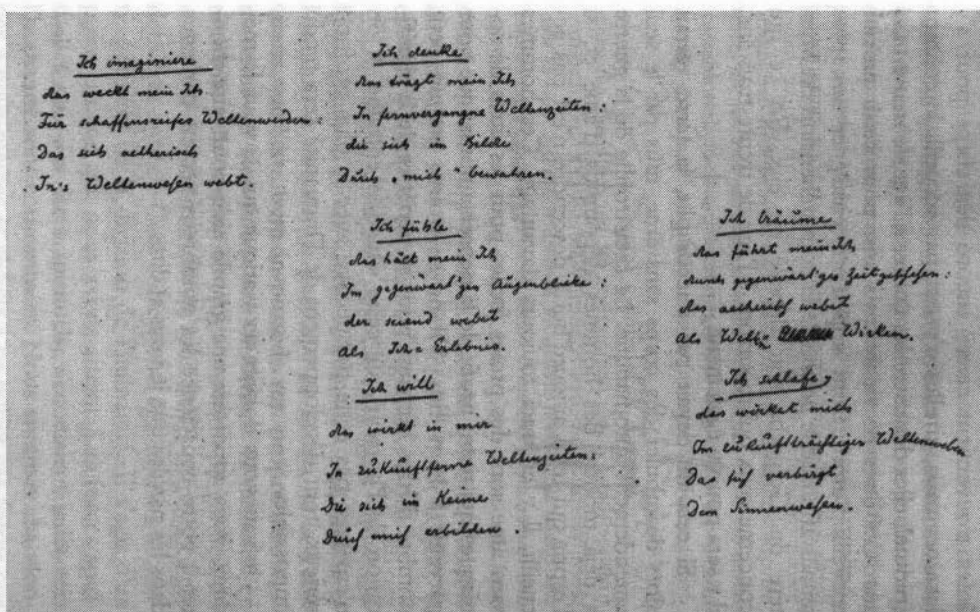 Ich imaginiere
das weckt mein Ich
Für schaffensreifes Weltenwerden:
Das sich aetherisch
In's Weltenwesen webt.
Ich denke
das trägt mein Ich
In fernvergangne Weltenzeiten:
die sich im Bilde
Durch „mich“ bewahren.
Ich fühle
das hält mein Ich
Im gegenwärt'gen Augenblicke:
der seiend webet
Als Ich=Erlebnis.
Ich will
das wirkt in mir
In zukunftferne Weltenzeiten:
Die sich im Keime
Durch mich erbilden.
Ich träume
das führt mein Ich
durch gegenwärt'ges Zeitgeschehen:
das aetherisch webet
Als Welten Wirken.
Ich schlafe,
das wirket mich
Im zukunftträchtigen Weltenweben
Das sich verbirgt
Dem Sinnenwesen.